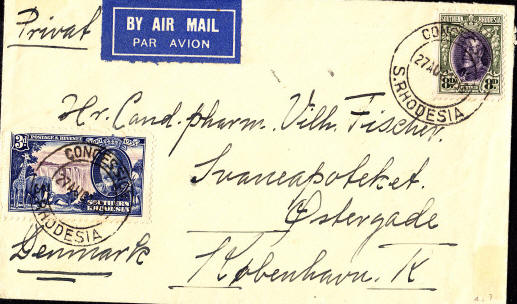 Privat
BY AIR MAIL
PAR AVION
SOUTHERN RHODESIA
8D 8D
CONCESSION
27 AU
S. RHODESIA
Hr. Cand. pharm. Vilh. Fischer.
Svaneapoteket.
Østergade
København. K
3D
POSTAGE & REVENUE
SOUTHERN
RHODESIA
CONCESSION
27 AU
RHODESIA
Denmark